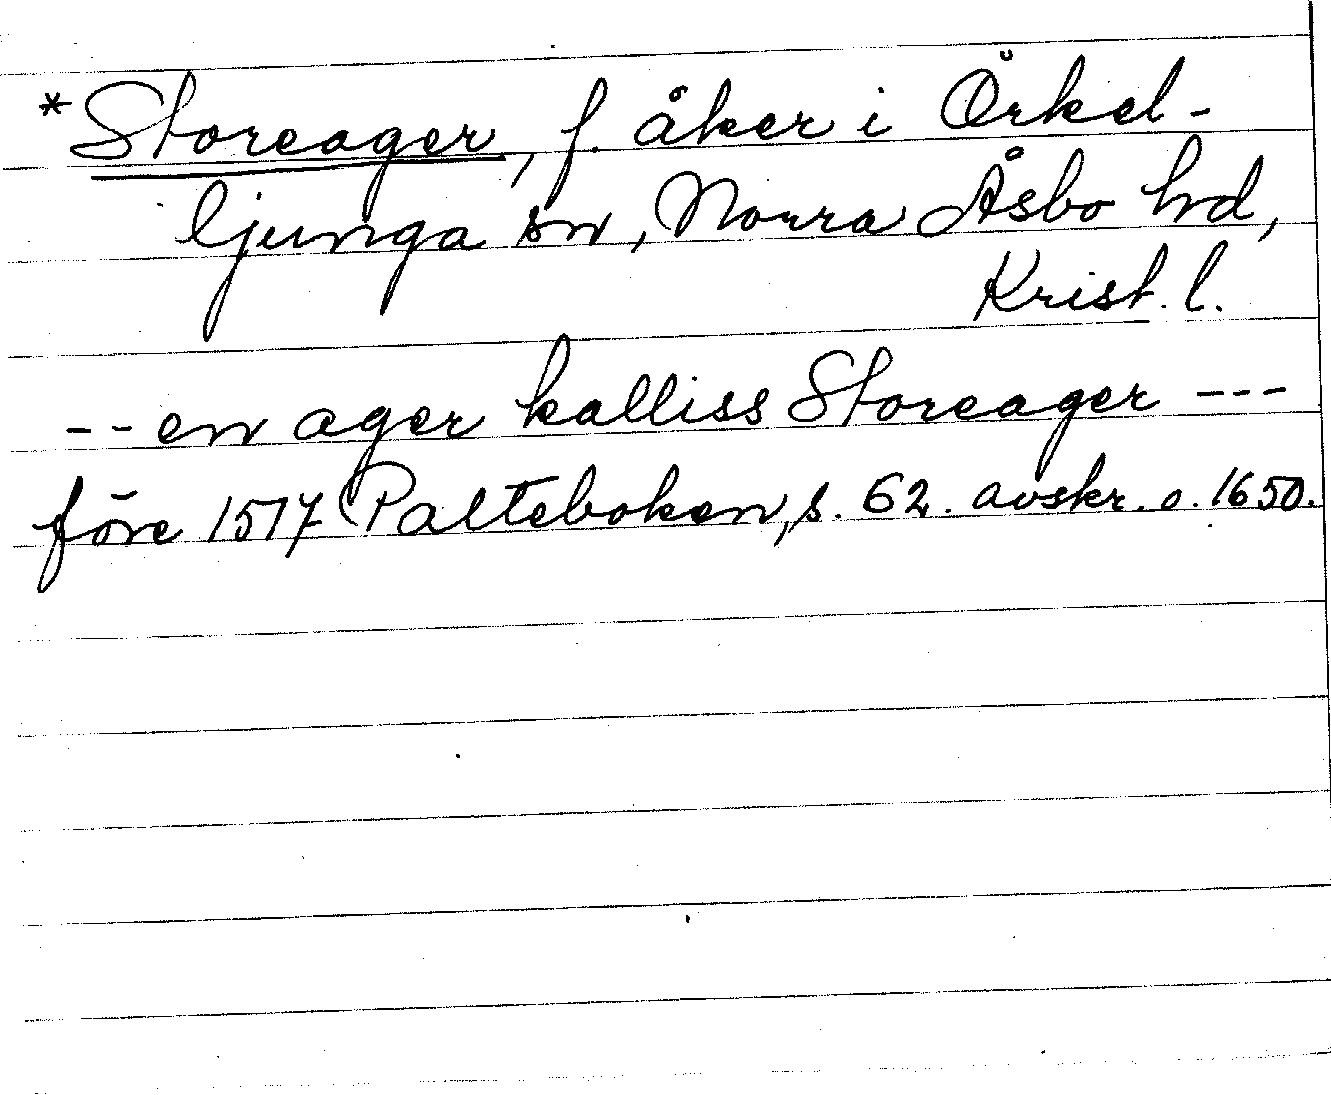 *Storeager, f. åker i Örkel-
ljunga sn, Norra Åsbo hd,
Krist. l.
-- en ager kalliss Storeager ---
före 1517 Palteboken, s. 62. avskr. o. 1650.